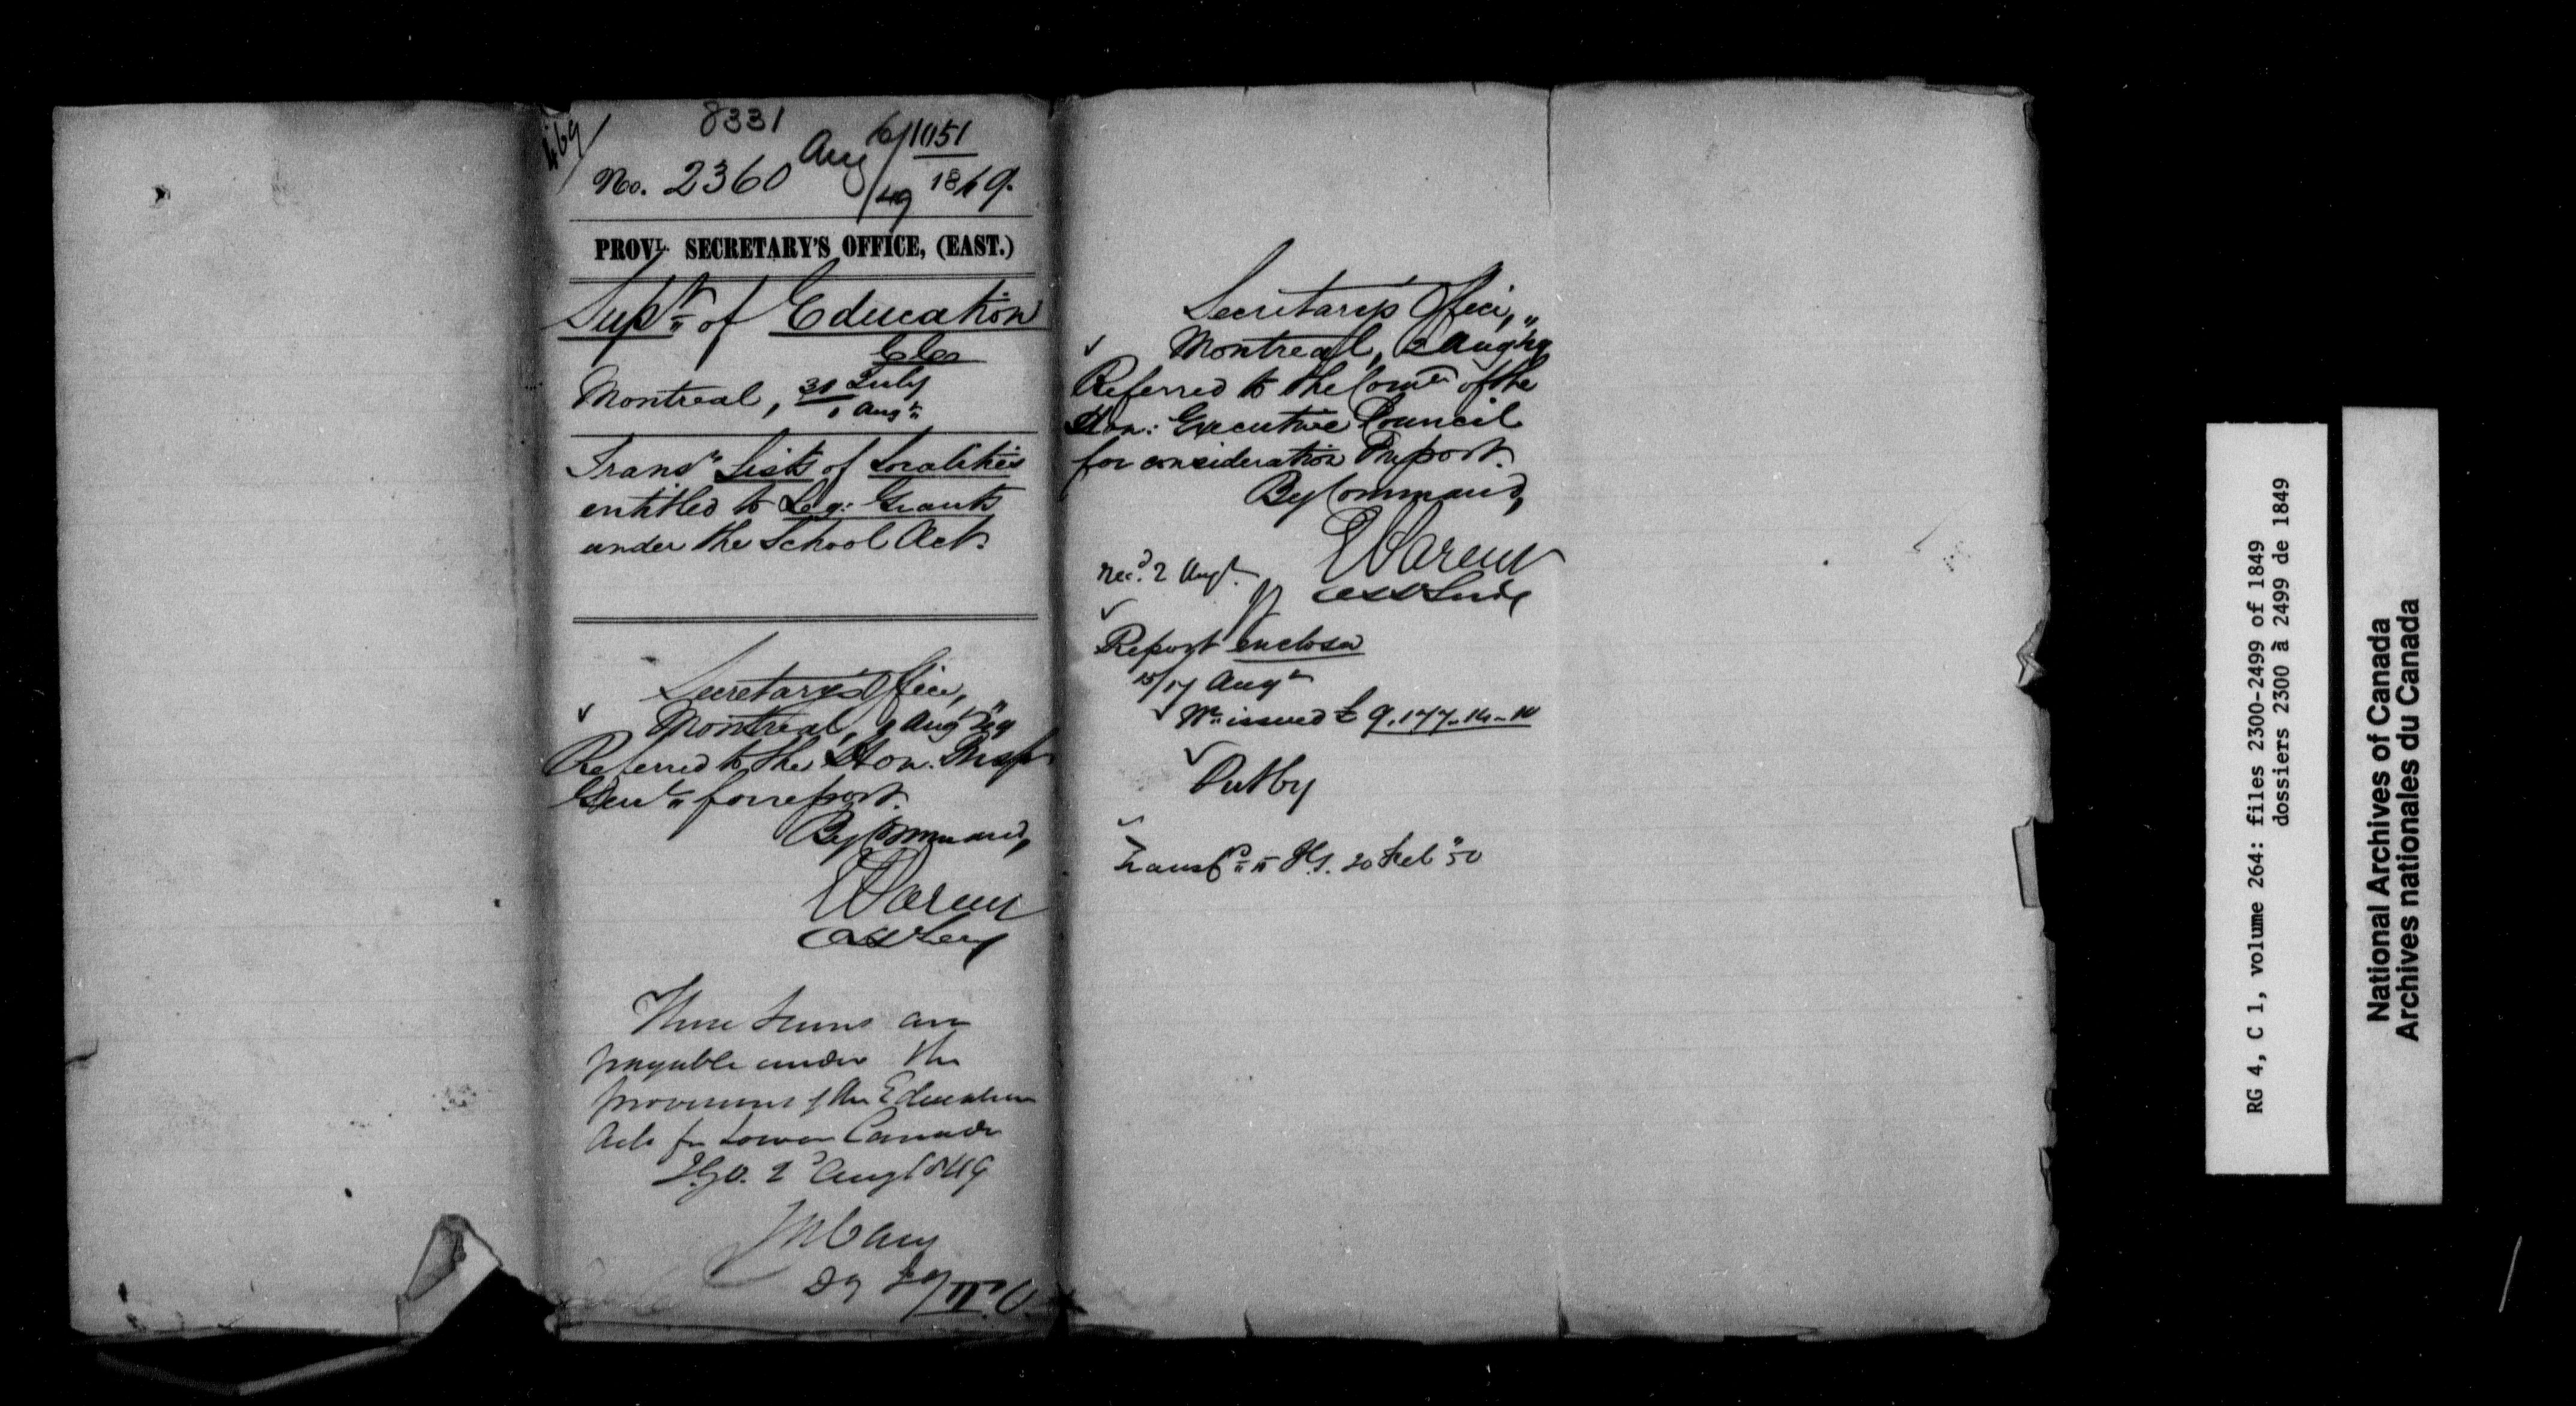 469
8331
Aug 6/1051
No. 2360 /49 1849.
PROVL. SECRETARY'S OFFICE, (EAST.)
Supt. of Education
Montreal, 31 July
1 Augt.
Transg. Lists of Localities
entitled to Leg: Grants
under the School Act.
Secretary's Office,
Montreal, 1 Aug 49
Referred to the Hon. Insp
Genl. for report.
By Command,
E Parent
Ass Secy
These sums are
payable under the
provisions of the Education
Acts for Lower Canada
I.G.O. 2d Augt 1849
J Cary
D I G
Secretary's Office,
Montreal, 2 Aug 49
Referred to the Comee. of the
Hon: Executive Council
for consideration & report.
By Command,
E Parent
Ass Secy
Recd. 2 Augt.
Report enclosed
15/17 Augt
Wt. issued £ 9,177.14-10
Put by
Transfd. 20 Feb 50
RG 4, C 1, volume 264: files 2300-2499 of 1849
dossiers 2300 à 2499 de 1849
National Archives of Canada
Archives nationales du Canada